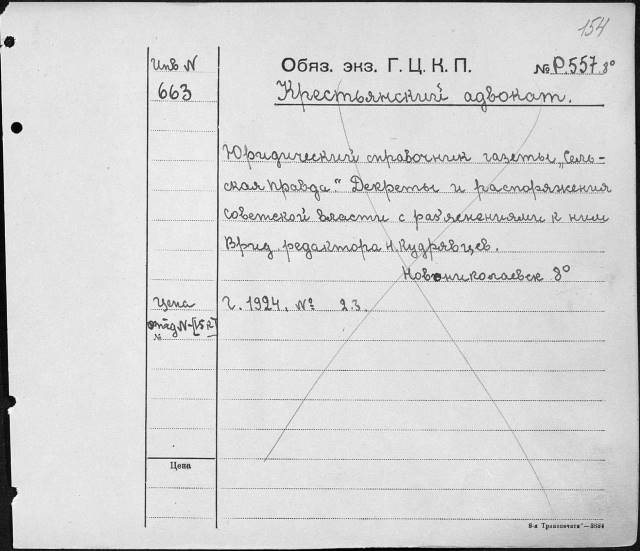 154
Инв N
Обяз. экз. Г. Ц. К. П.
№ Р.557. 8°
663
Крестьянский адвокат.
Юридический справочник газеты „Сель-
ская правда". Декреты и распоряжения
советской власти с раз'яснениями к ним
Врид. редактора Н. Кудрявцев.
Новониколаевск 8°
Цена
Г. 1924. № 2.3.
N-[15к]
№
Цена